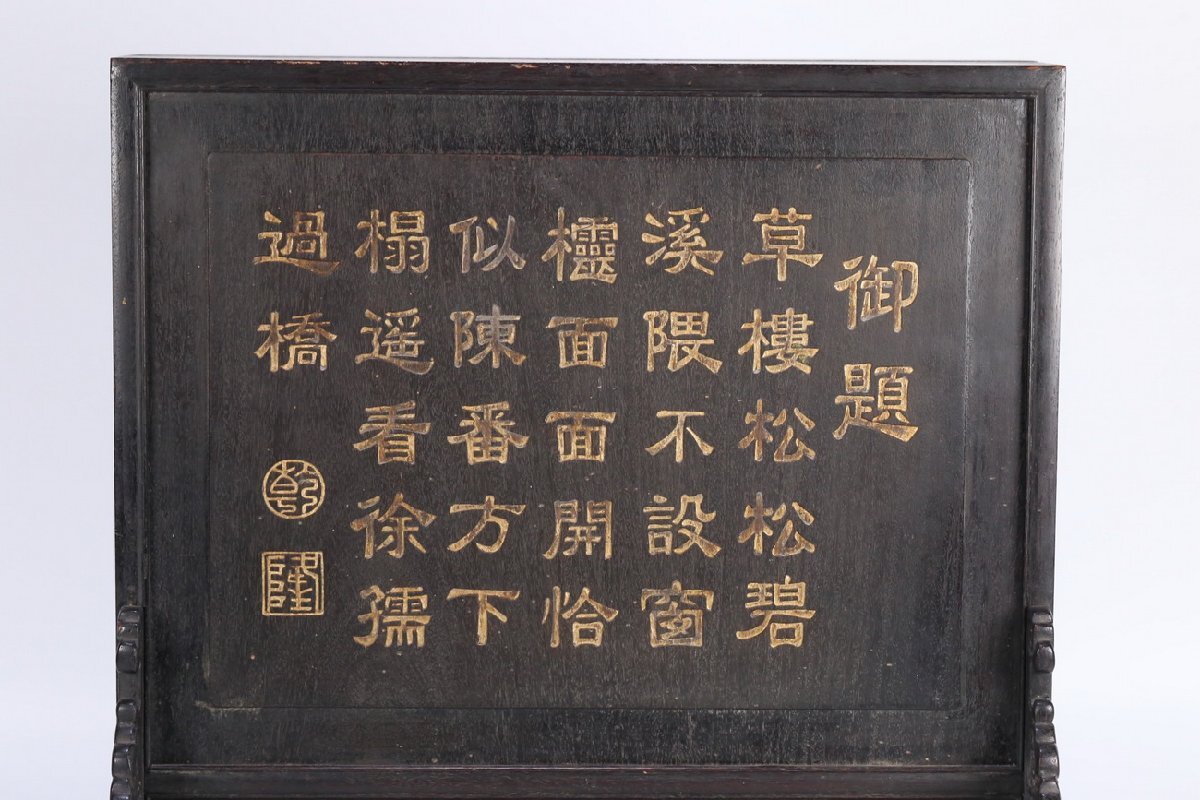 御題
草樓松松碧
溪隈不設窗
欞面面開恰
似陳番方下
榻遥看徐孺
過橋
乾
隆